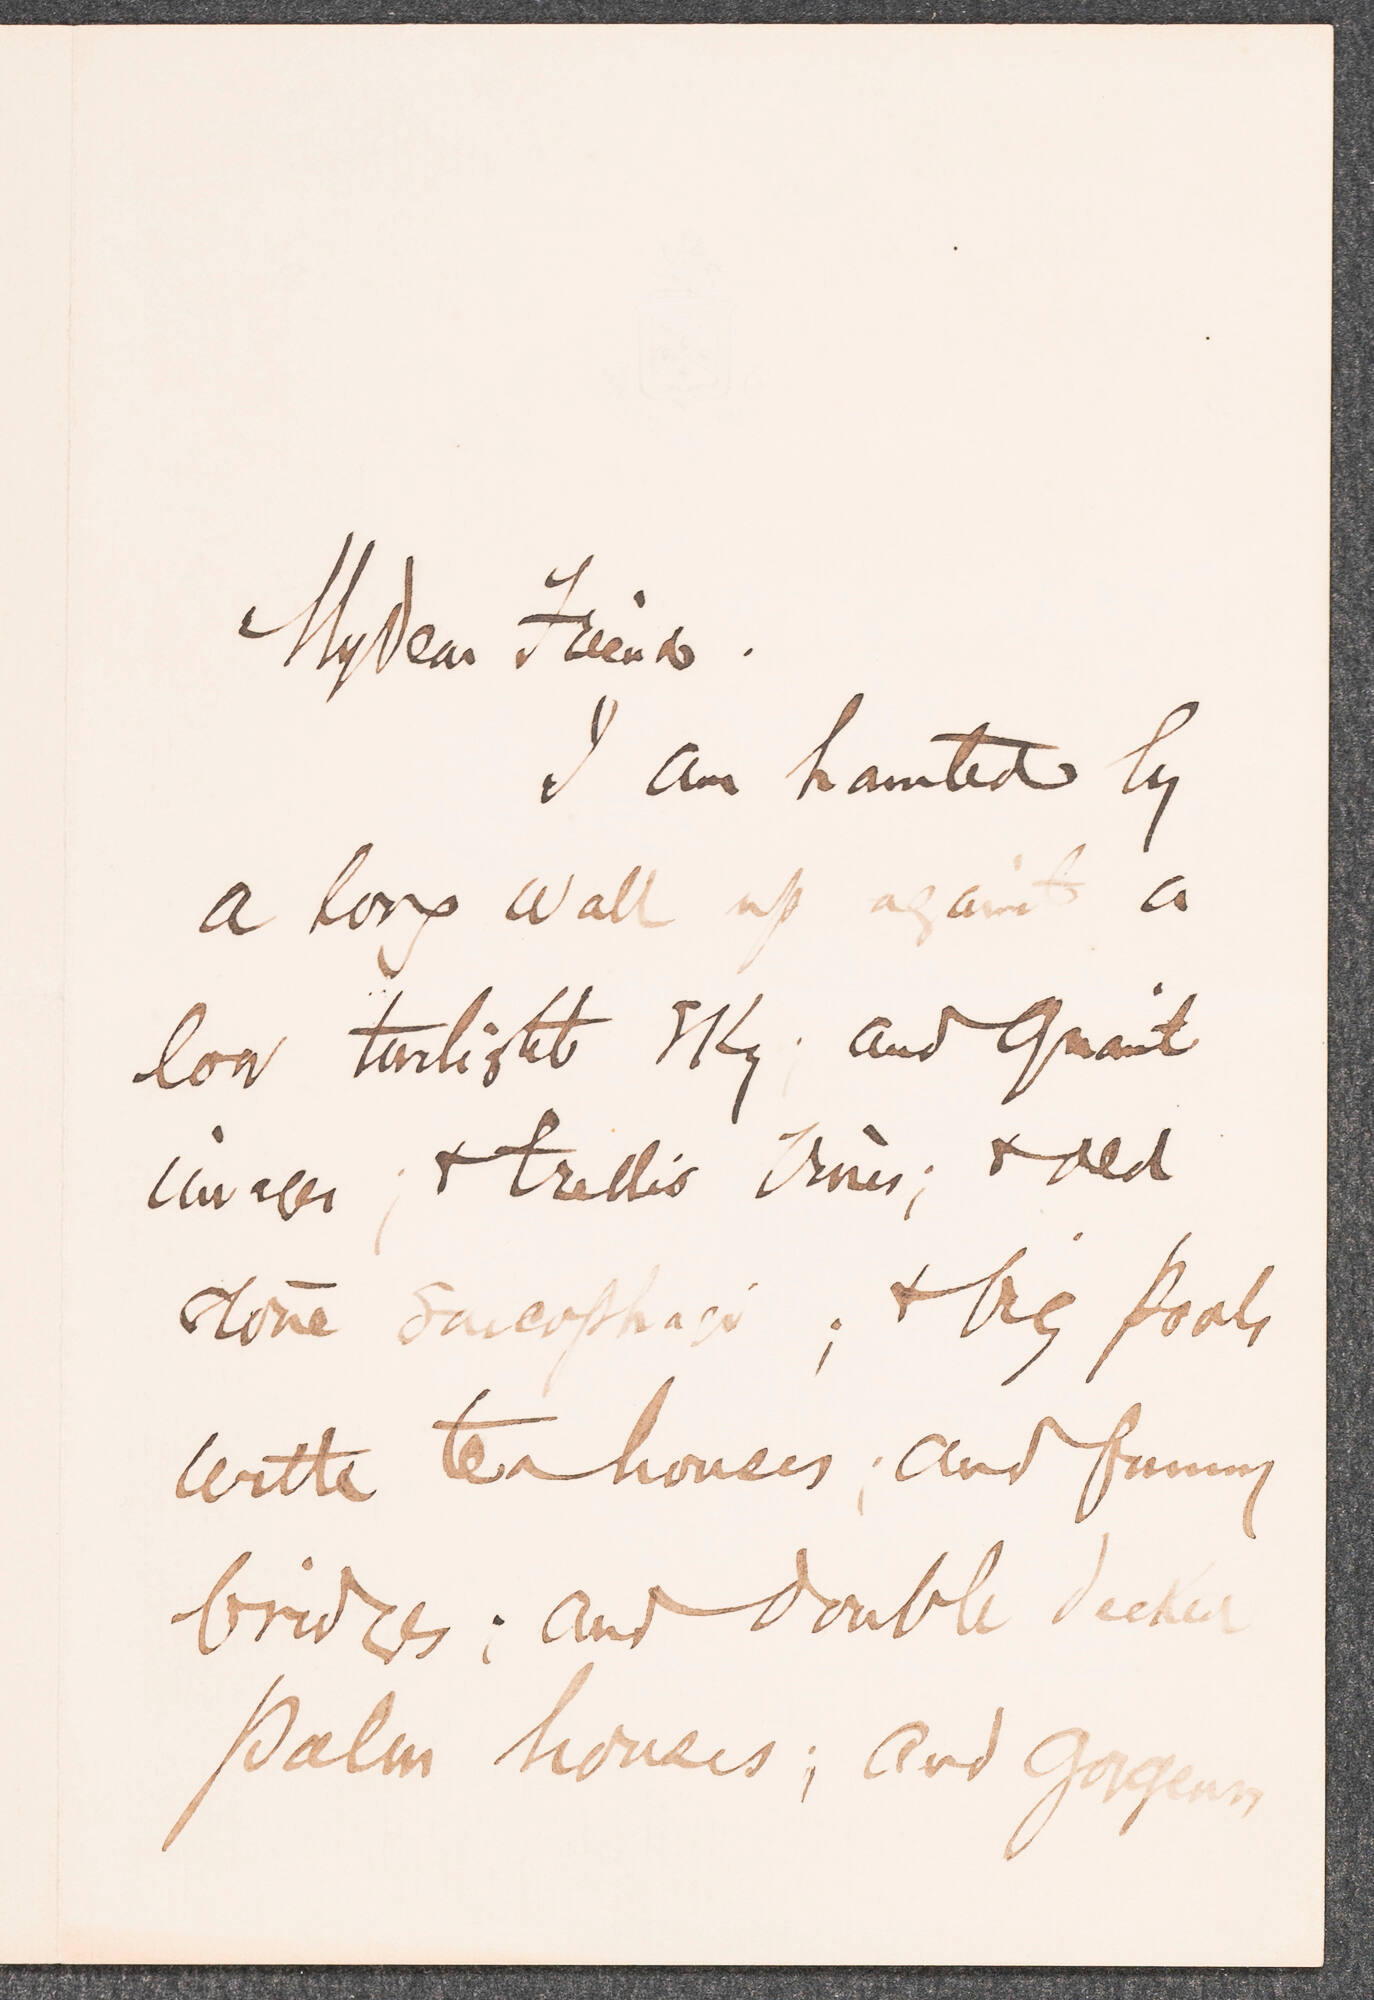 My dear Friend.
I am haunted by
a long wall up against a
low twilight sky; and quaint
images; & trellis vines; & old
stone sarcophagi; & big pools
with tea houses; and funny
bridges; and double decked
palm houses; and gorgeous